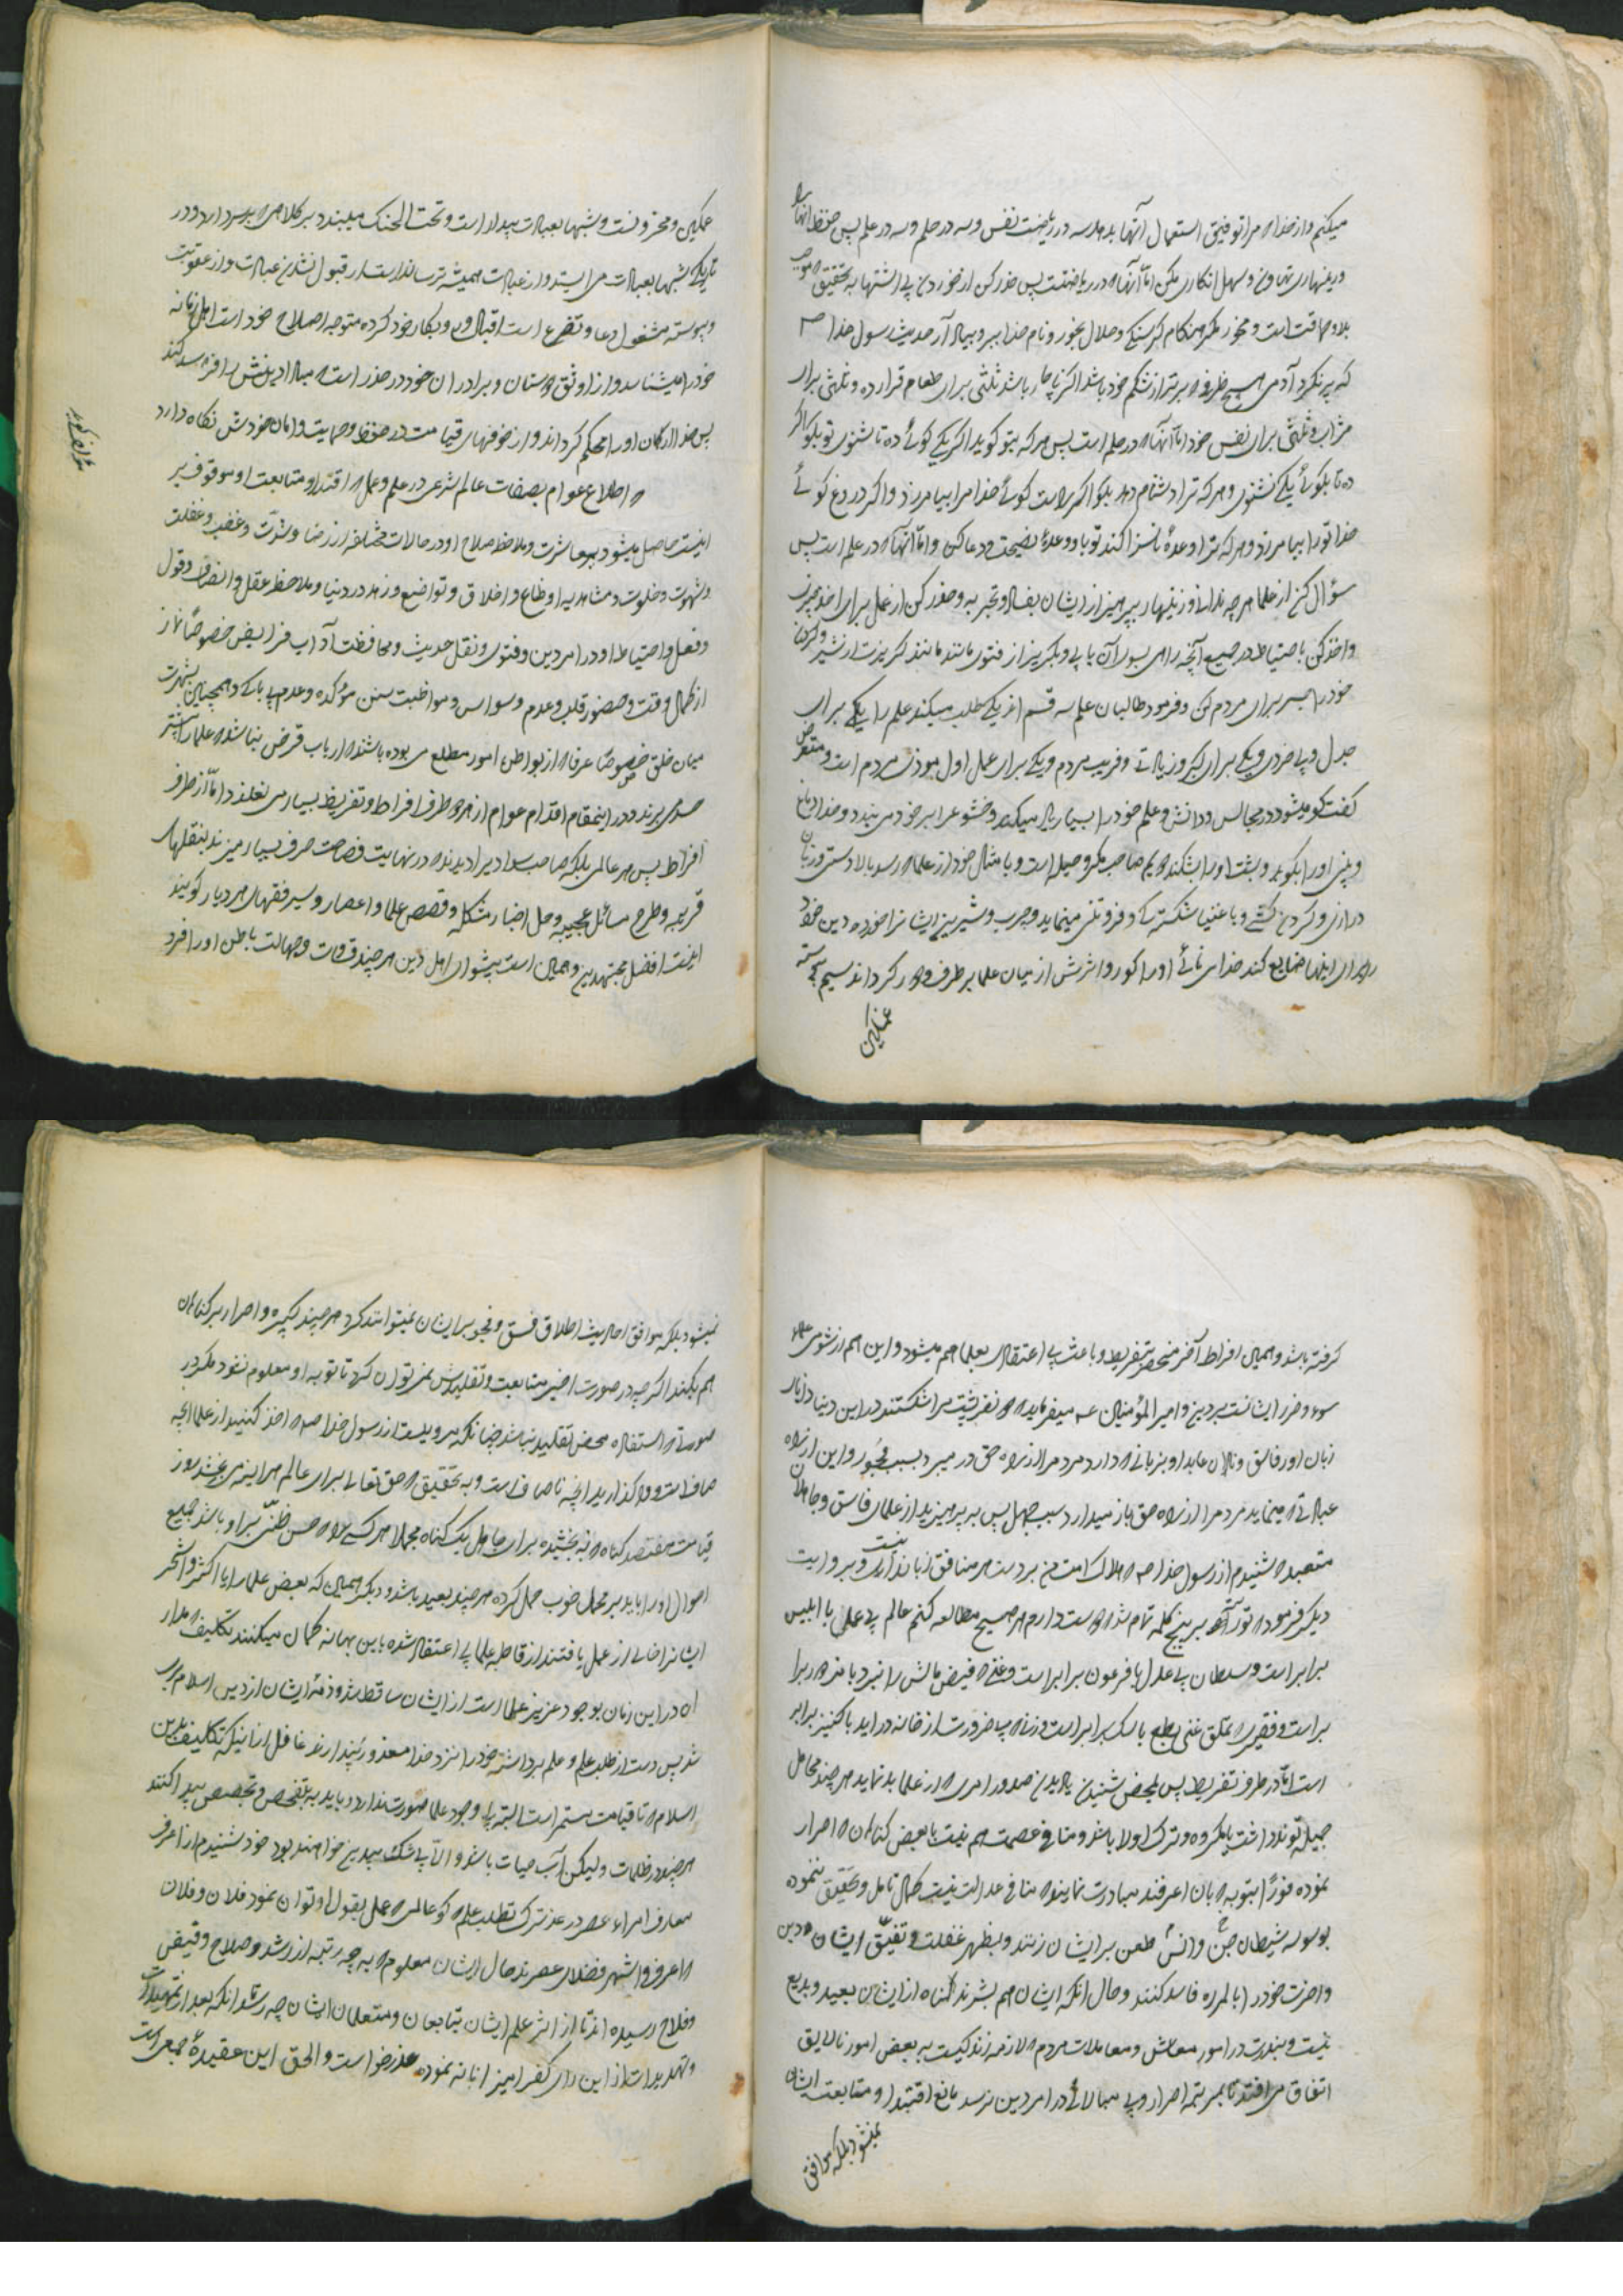 میکنم و از خدا که مرا توفیق استعمال آنها بدهد سه در ریاضت نفس و سه در حلم و سه در علم پس حفظ کن آنها را
و زینهار تهاون و سهل انکاری مکن اما آنها که در ریاضتست پس حذر کن از خوردن بی اشتها به تحقیق که موجب
بلاو حماقت است و مخور مکر هنکام کرسنکی و حلال بخور و نام خدا ببر و بیاد آر حدیث رسول خدا ص
که پر نکرد آدمی هیچ ظرفی که بدتر از شکم خود باشد اکر ناچار باشد ثلثی برای طعام قرار ده و ثلثی برای
شراب و ثلثی برای نفس خود اما آنها که در حلم است پس هر که بتو کوید اکر یکی کوئی ده تا شنوی تو بکو اکر
ده تا بکوئی یکی نشنوی و هر که ترا دشنام دهد بکو اکر راست کوئی خدا مرا بیامرزد و اکر دروغ کوئی
خدا تو را بیامرزد و هر که ترا وعدۀ ناسزا کند تو باو وعدۀ نصیحت و دعا کن و اما آنها که در علم است پس
سؤال کن از علما هر چه ندانی و زینهار بپرهیز از ایشان بعناد و تجربه و حذر کن از عمل برای خود چیزی
و اخذ کن باحتیاط در جمیع آنچه راهی بسوی آن یابی و بکریز از فتوی مانند کریزت از شیر و کردن
خود را جسر برای مردم مکن و فرمود طالبان علم سه قسم اند یکی طلب میکند علم را یکی برای
جدل و بیخردی و یکی برای تکبر و زیادتی و فریب مردم و یکی برای عمل اول موذی مردم است و متعرض
کفت کو میشود در مجالس و دانش و علم خود را بسیار یاد میکند و خشوع را بر خود می بندد و خدا دماغ
و بینی او را بکوبد و پشت او را بشکند دویم صاحب مکر و حیله است و با مثال خود از علما که رسد بالادستی و زبان
درازی و کردن کشی و باغنیا شکستکی و فروتنی مینماید و چرب و شیرین ایشانرا خورده دین خود
را برای اینها ضایع کند خدای تعالی او را کور و اثرش از میان علما برطرف و دور کرداند سیم همیشه
غمکین
غمکین و محزونست و شبها بعبادت بیدار است و تحت الحنک میبندد بر کلاهی که بر سر دارد و در
تاریکی شبها بعبادت می ایستد و از عبادت همیشه ترسانست از قبول نشدن عبادت و از عقوبت
و پیوسته مشغول دعا و تضرع است اقبال و بکار خود کرده متوجه اصلاح خود است اهل زمانه
خود را میشناسد و از اوثق دوستان و برادران خود در حذر است که مبادا دینش را فاسد کند
پس خدا ارکان او را محکم کرداند و از خوفهای قیامت در حفظ و حمایت و امان خودش نکاه دارد
و اطلاع عوام بصفات عالم شرعی در علم و عمل که اقتدا و متابعت او موقوف بر
اینست حاصل میشود بمعاشرت و ملاحظه صلاح او در حالات مختلفه از رضا و شدت و غضب و غفلت
و شهوت و خلوت و مشاهده اوضاع و اخلاق و تواضع و زهد در دنیا و ملاحظه عقل و انصاف و قول
و فعل و احتیاط او در امر دین و فتوی و نقل حدیث و محافظت آداب فرایض خصوصاً نماز
از کمال وقت و حضور قلب و عدم وسواس و مواظبت سنن مؤکده و عدم بی باکی و همچنین بشهرت
میان خلق خصوصاً عرفا که از بواطن امور مطلع می بوده باشند که ارباب غرض نباشند که علما را بیشتر
حسد می برند و در اینمقام اقدام عوام از هر دو طرف افراط و تفریط بسیار می لغزد اما از طرف
افراط پس هر عالمی بلکه صاحب سوادیرا دیدند که در نهایت فصاحت حرف بسیار میزند بنقلهای
غریبه و طرح مسائل عجیبه و حل اخبار مشکله و قصص علما و اعصار و سیر فقهای هر دیار کویند
اینست افضل مجتهدین و همین است پیشوای اهل دین هر چند قساوت و جهالت باطن او را فرو
کرفته باشد و همین افراط آخر منجر بتفریط و باعث بی اعتقادی بعلما هم میشود و این هم از شومی علماء
سوء و ضرر ایشانست بر دین و امیر المؤمنین ع میفرماید که دو نفر پشت مرا شکستند در این دنیا دانای
زبان آور فاسق و نادان عابد او بزبانی که دارد مردم را از راه حق در میبرد بسبب فجور و این از راه
عبادتی که مینماید مردم را از راه حق باز میدارد بسبب جهل پس به پرهیزید از علمای فاسق و جاهلان
متعبد که شنیدم از رسول خدا ص که هلاک امت من بر دست هر منافق زبان داریست و بروایت
دیکر فرمود که تورات بر پنج کلمه تمام شد که دوست دارم هر صبح مطالعه کنم عالم بی عمل با ابلیس
برابر است و سلطان بی عدل با فرعون برابر است و غنی که فیض مالش را نبرد با مردار برا
بر است و فقیری که تملق غنی بطمع با سک برابر است و زنی که بیضرورت از خانه در اید با کنیز برابر
است اما در طرف تفریط پس بمحض شنیدن یا دیدن صدور امری که از علما بد نماید هر چند محامل
جمیله تواند داشت یا مکروه و ترک اولا باشد و منافی عصمت هم نیست یا بعض کناهان که اصرار
نموده فوراً بتوبه که بان اعرفند مبادرت نمایند که منافی عدالت نیست کمال تامل و تحقیق ننموده
بوسوسه شیطان جن و انس طعن بر ایشان زنند و بظهر غفلت و تفیق ایشان که دین
و اخرت خود را بالمره فاسد کنند و حال انکه ایشان هم بشرند کناه از ایشان بعید و بدیع
نیست و بندرت در امور معاش و معاملات مردم که لازمه زندکیست به بعض امور نالایق
اتفاق می افتد تا بمرتبه اصرار و بی مبالاتی در امر دین نرسد مانع اقتدا و متابعت ایشان
نمیشود بلکه موافق
نمیشود بلکه موافق احادیث اطلاق فسق و فجور بر ایشان نمیتوانند کرد هر چند کبیره و اصرار بر کناهان
هم بکنند اکر چه در صورت اخیر متابعت و تقلیدش نمی توان کرد تا توبه او معلوم نشود مکر در
صورتی که استفاده محض تقلید نباشد چنانکه مرویست از رسول خدا ص که اخذ کنید از علما انچه
صافست و واکذارید انچه ناصافست و به تحقیق که حق تعالی برای عالم هر اینه می بخشد روز
قیامت هفتصد کناه که نه بخشیده برای جاهل یک کناه مجملا هر کسی را که حسن ظنی بر او باشد جمیع
احوال او را باید بر محمل خوب حمل کرده هر چند بعید باشد و دیکر همین که بعض علما را یا اکثر و اشهر
ایشانرا خالی از عمل یافتند از قاطبه علما بی اعتقاد شده باین بهانه کمان میکنند تکلیف که مدار
آن در این زمان بوجود عزیز علما است از ایشان ساقط شد و ذمۀ ایشان از دین اسلام بری
شد پس دست از طلب علم و علم برداشته خود را نزد خدا معذور پندارند غافل از اینکه تکلیف بدین
اسلام که تا قیامت مستمر است البته بی وجود علما صورت ندارد و باید به تفحص و تجسس پیدا کنند
هر چند در ظلمات ولیکن آب حیات باشد و الا بی شک بیدین خواهند بود خود شنیدم از اعرف
معارف امراء عصر در عذر ترک تطلب علم که کو عالمی که عمل بقول او توان نمود فلان و فلان
که اعرف و اشهر فضلای عصرند حال ایشان معلوم که به چه رتبه از رشد و صلاح و فیض
و فلاح رسیده اند تا از اثر علم ایشان بتابعان و متعلمان ایشان چه رسد انکه بعد از تمهیدات
و تهدیدات از این رای کفر امیز انابه نموده عذرخواست و الحق این عقیدۀ جمعی است